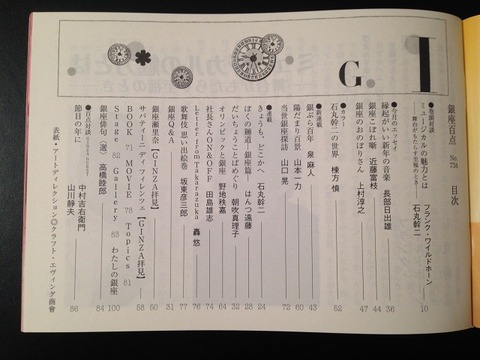 I
G.
銀座百点 No.734 目次
●巻頭対談
ミュージカルの魅力とは
舞台がもたらす至福のとき
フランク・ワイルドホーン
石丸幹二 10
●今月のエッセイ
縁起がいい新年の音楽 長部日出雄 36
銀座こぼれ噺 近藤富枝 44
銀座のおのぼりさん 上村淳之 47
●カラー
石丸幹二の世界 棟方慎 52
●新連載
銀ぶら百年 泉麻人 43
陽だまり百景 山本一力 60
当世銀座探訪 山口晃 72
●連載
きょうも、どこかへ 石丸幹二 24
ぼくの麺道—銀座篇— はんつ遠藤 28
だいちょうことばめぐり 朝吹真理子 32
オリンピックと銀座 野地秩嘉 64
社長さんのON&OFF 田島雄志 74
Letter from Takarazuka 轟悠 76
歌舞伎 思い出絵巻 坂東彦三郎 77
銀座Q&A 31
銀座細見奈【GINZA拝見】 50
サバティーニ ディ フィレンツェ【GINZA拝見】 58
BOOK 71 MOVIE 78 Topics 81
Stage 82 Gallery 83 わたしの銀座 100
銀座俳句〈選〉高橋睦郎 84
●百点対談
節目の年に 中村吉右衛門
山川静夫 86
表紙・アートディレクション◎クラフト・エヴィング商會